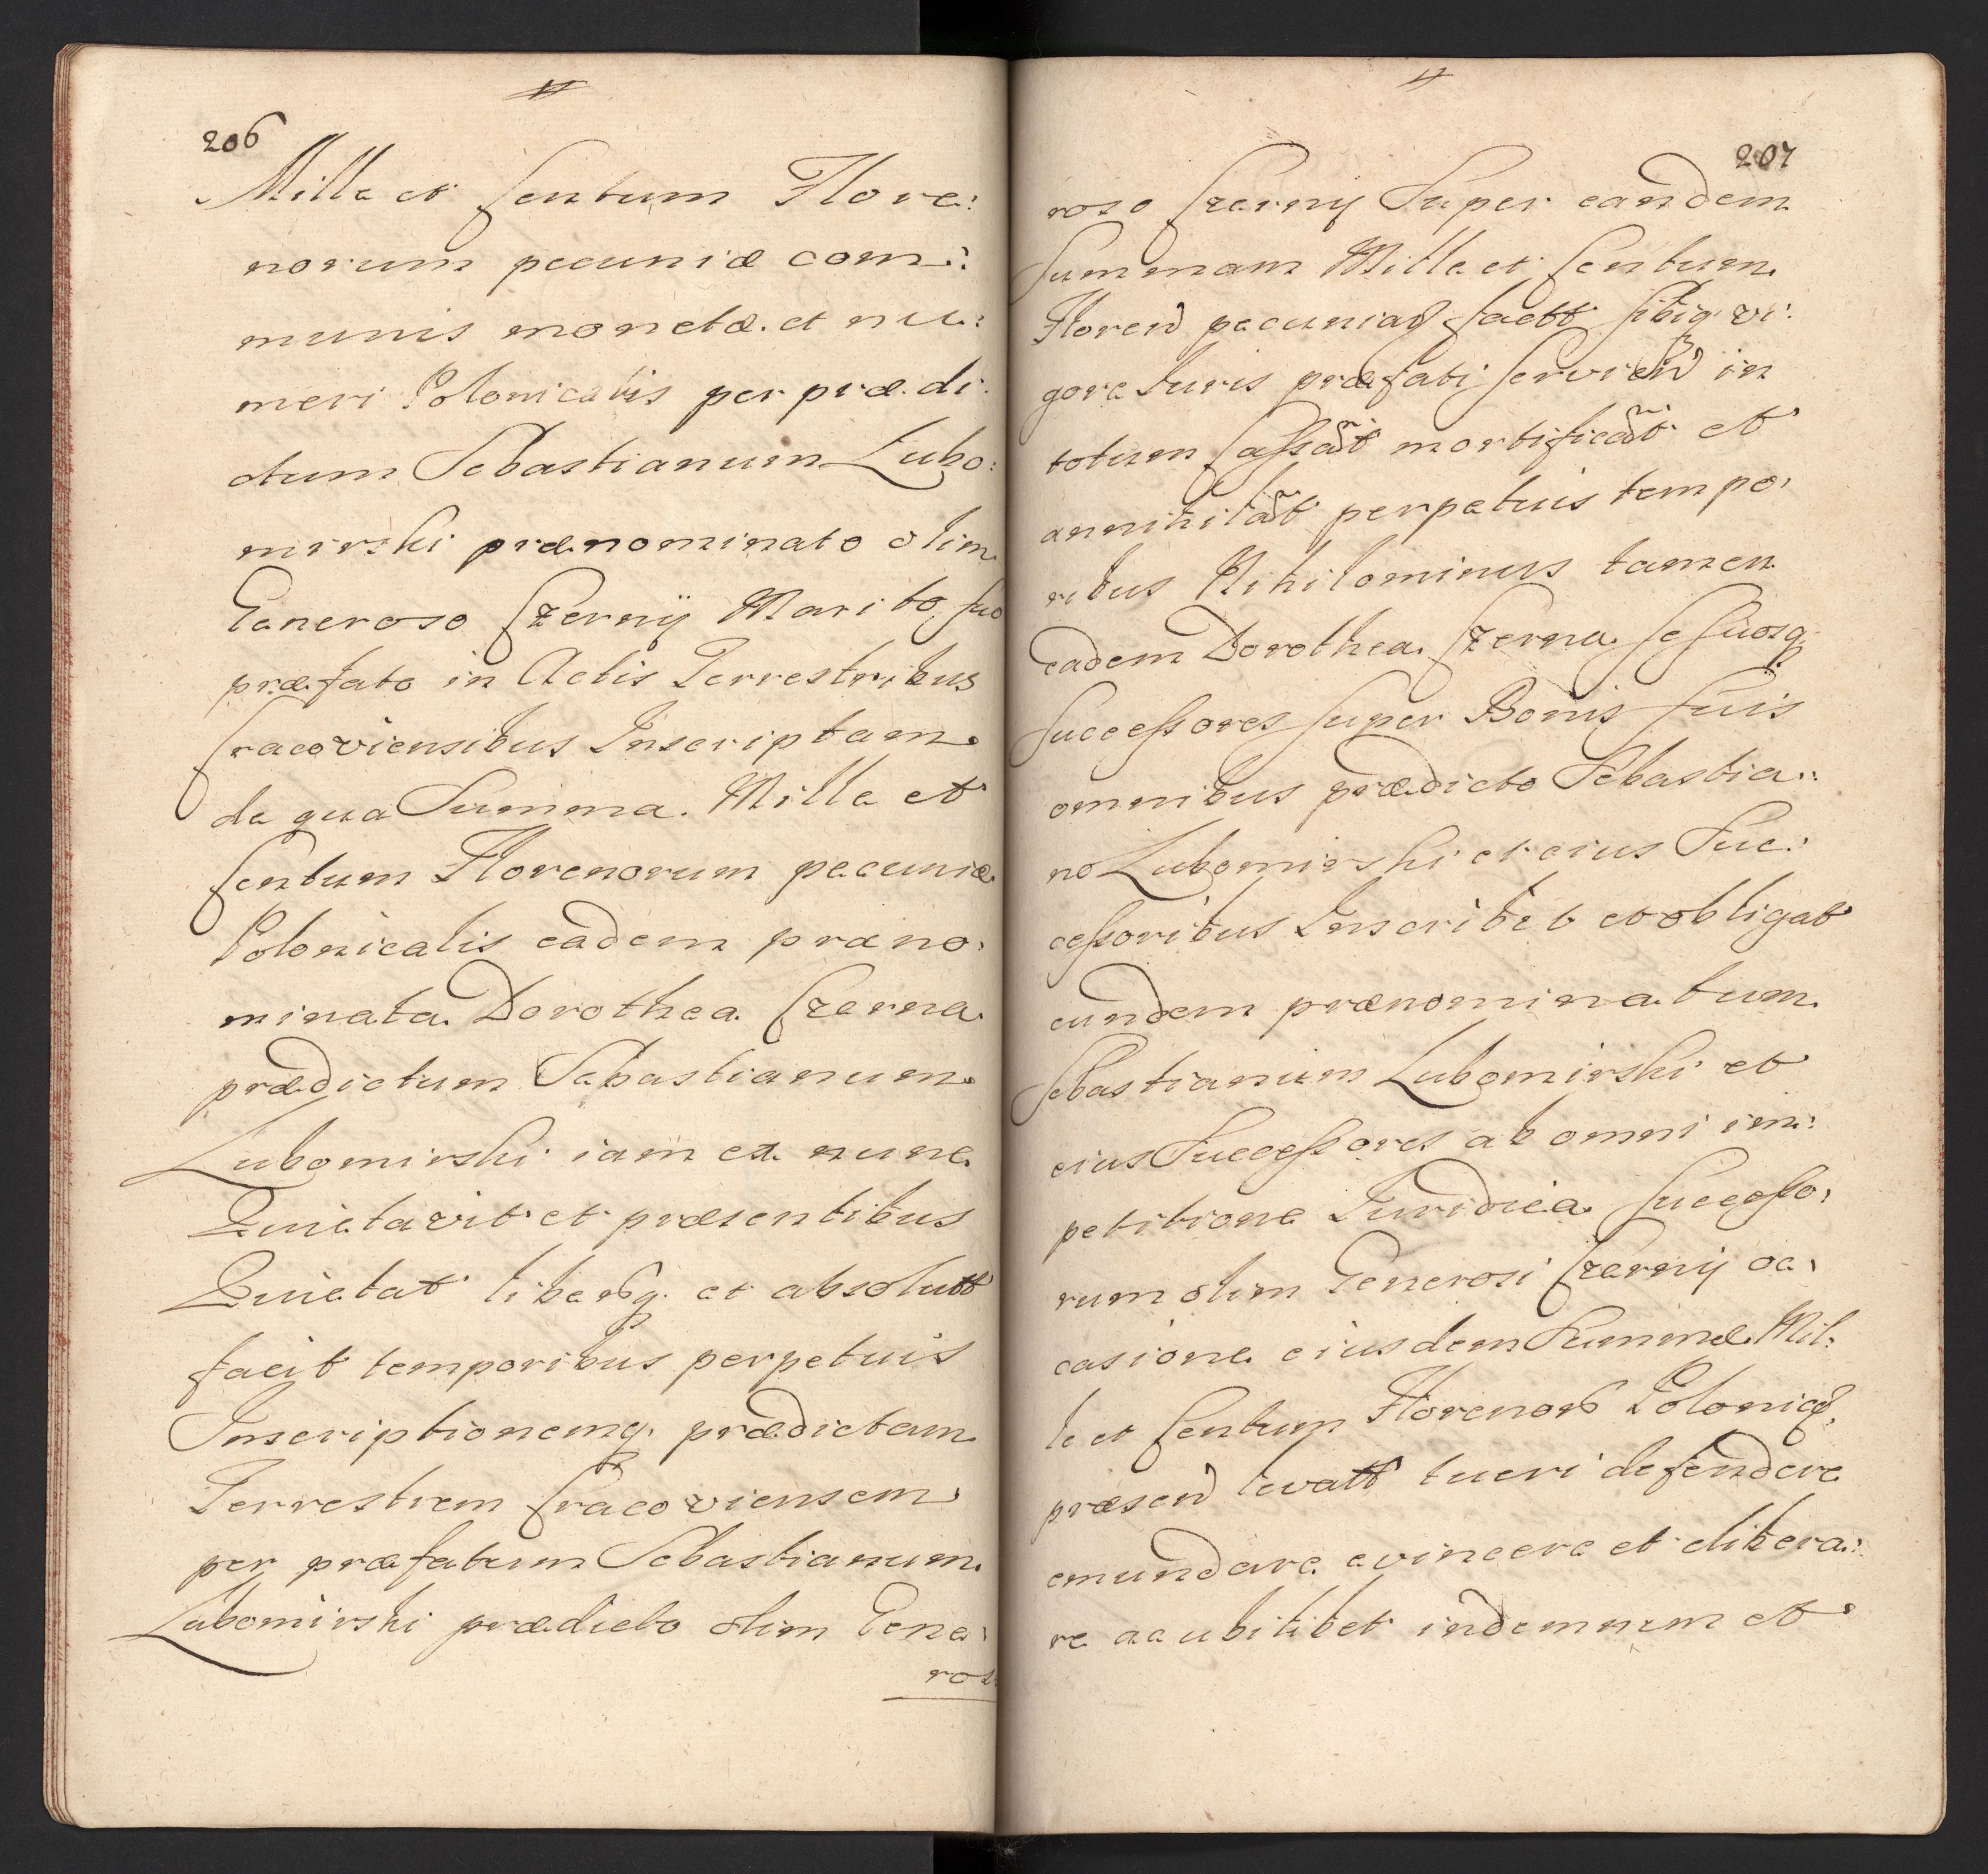 206
Mille et Centum Flore:
norum pecuniæ com:
munis monetæ et nu:
meri Polonicalis per præ di:
ctum Sebastianum Lubo:
mirski prænominato olim
Generoso Czerny Marito suo
præfato in Actis Terrestribus
Cracoviensibus Inscriptam
de qua Summa Mille et
Centum Florenorum pecuniæ
Polonicalis eadem præno:
minata Dorothea Czerna
prædictum Sebastianum
Lubomirski iam ex nunc
Quietavit et præsentibus
Quietat liberq. et absolutt
facit temporibus perpetuis
Inscriptionemq. prædictam
Terrestrem Cracoviensem
per præfatum Sebastianum
Lubomirski prædicto olim Gene:
roso
207
roso Czerny Super eandem
Summam Mille et Centum
Floren pecuniaq factt sibiq vi:
gore Iuris præfati servien in
totum Cassat mortificat et
annihilat perpetuis tempo:
ribus Nihilominus tamen
eadem Dorothea Czerna se suosq.
Successores super Bonis suis
omnibus prædicto Sebastia:
no Lubomirski et eius Suc:
cessoribus Inscribit et obligat
eundem prænominatum
Sebastianum Lubomirski et
eius Successores ab omni im:
petitione Iuridica Successo:
rum olim Generosi Czerny oc:
casione eiusdem Summæ Mil:
le et Centum Florenor Polonicq
præsen levatt tueri defendere
emundare evincere et elibera:
re ac ubilibet indemnem et